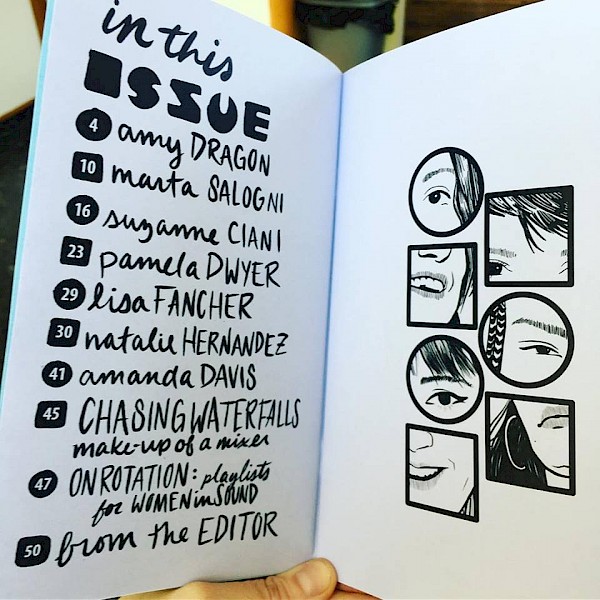 in this
ISSUE
4 amy DRAGON
10 marta SALOGNI
16 suzanne CIANI
23 pamela DWYER
29 lisa FANCHER
30 natalie HERNANDEZ
41 amanda DAVIS
45 CHASING WATERFALLS
make-up of a mixer
47 ON ROTATION: playlists
for WOMEN in SOUND
50 from the EDITOR